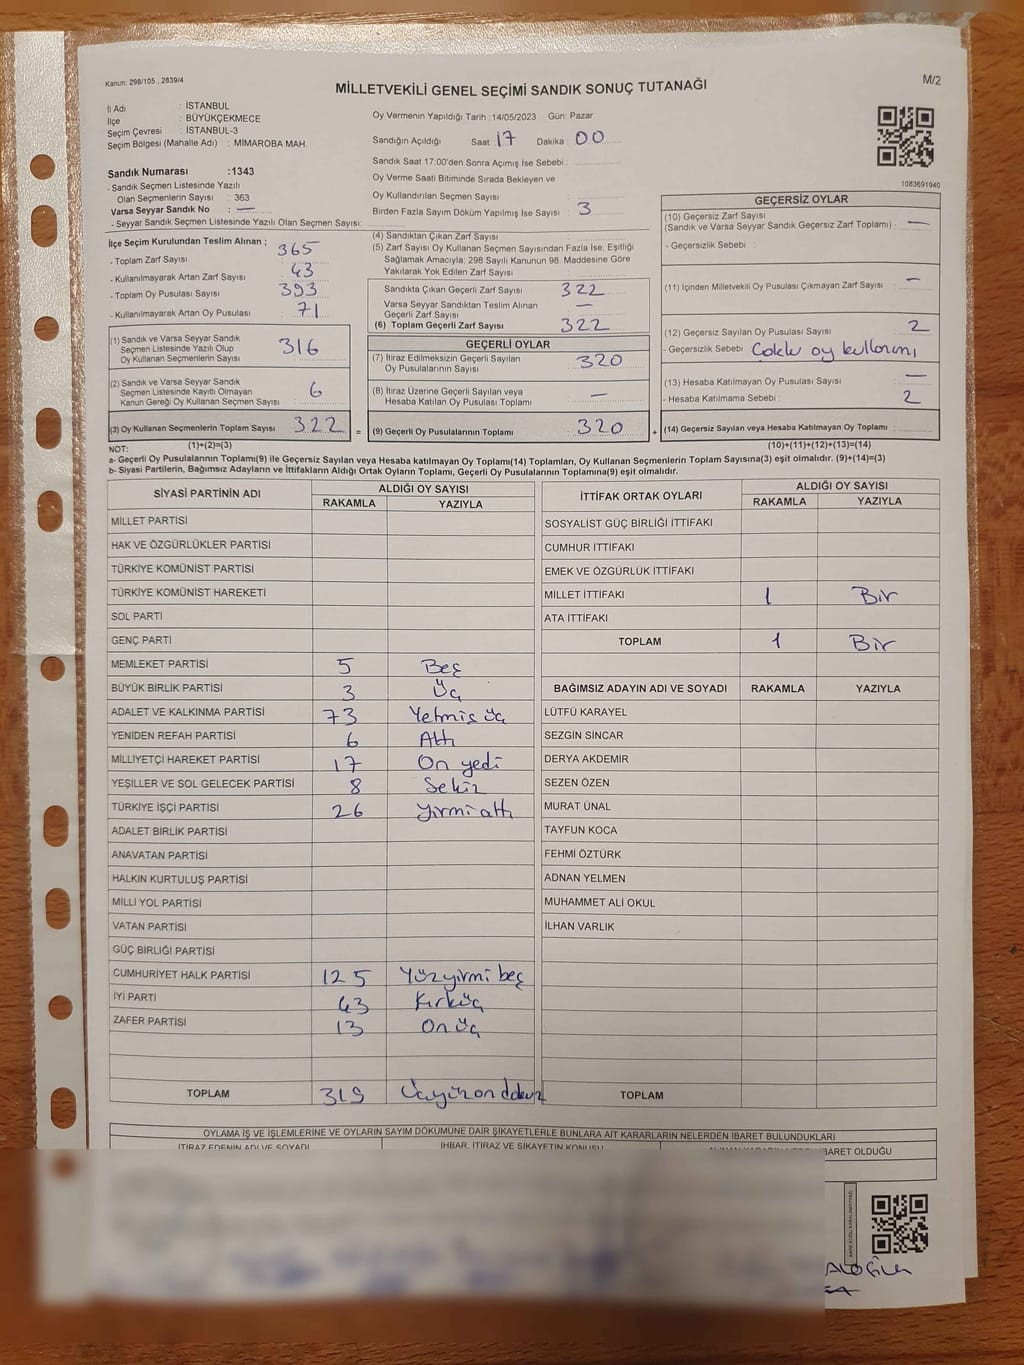 Kanun: 298/105 , 2839/4
MİLLETVEKİLİ GENEL SEÇİMİ SANDIK SONUÇ TUTANAĞI
M/2
İl Adı : İSTANBUL
İlçe : BÜYÜKÇEKMECE
Seçim Çevresi : İSTANBUL-3
Seçim Bölgesi (Mahalle Adı) : MİMAROBA MAH.
Sandık Numarası :1343
- Sandık Seçmen Listesinde Yazılı
Olan Seçmenlerin Sayısı : 363
Varsa Seyyar Sandık No : —
- Seyyar Sandık Seçmen Listesinde Yazılı Olan Seçmen Sayısı:
Oy Vermenin Yapıldığı Tarih :14/05/2023 Gün: Pazar
Sandığın Açıldığı Saat: 17 Dakika : 00
Sandık Saat 17:00'den Sonra Açımış İse Sebebi :
Oy Verme Saati Bitiminde Sırada Bekleyen ve
Oy Kullandırılan Seçmen Sayısı :
Birden Fazla Sayım Döküm Yapılmış İse Sayısı : 3
1083691940
İlçe Seçim Kurulundan Teslim Alınan ;
- Toplam Zarf Sayısı : 365
- Kullanılmayarak Artan Zarf Sayısı : 43
- Toplam Oy Pusulası Sayısı : 393
- Kullanılmayarak Artan Oy Pusulası : 71
(1) Sandık ve Varsa Seyyar Sandık
Seçmen Listesinde Yazılı Olup
Oy Kullanan Seçmenlerin Sayısı : 316
(2) Sandık ve Varsa Seyyar Sandık
Seçmen Listesinde Kayıtlı Olmayan
Kanun Gereği Oy Kullanan Seçmen Sayısı : 6
(3) Oy Kullanan Seçmenlerin Toplam Sayısı : 322
(4) Sandıktan Çıkan Zarf Sayısı :
(5) Zarf Sayısı Oy Kullanan Seçmen Sayısından Fazla İse, Eşitliği
Sağlamak Amacıyla; 298 Sayılı Kanunun 98. Maddesine Göre
Yakılarak Yok Edilen Zarf Sayısı :
Sandıkta Çıkan Geçerli Zarf Sayısı : 322
Varsa Seyyar Sandıktan Teslim Alınan
Geçerli Zarf Sayısı : —
(6) Toplam Geçerli Zarf Sayısı : 322
GEÇERLİ OYLAR
(7) İtiraz Edilmeksizin Geçerli Sayılan
Oy Pusulalarının Sayısı : 320
(8) İtiraz Üzerine Geçerli Sayılan veya
Hesaba Katılan Oy Pusulası Toplamı : —
= (9) Geçerli Oy Pusulalarının Toplamı : 320
GEÇERSİZ OYLAR
(10) Geçersiz Zarf Sayısı
(Sandık ve Varsa Seyyar Sandık Geçersiz Zarf Toplamı) : —
- Geçersizlik Sebebi :
(11) İçinden Milletvekili Oy Pusulası Çıkmayan Zarf Sayısı : —
(12) Geçersiz Sayılan Oy Pusulası Sayısı : 2
- Geçersizlik Sebebi : Çoklu oy kullanımı
(13) Hesaba Katılmayan Oy Pusulası Sayısı : —
- Hesaba Katılmama Sebebi : 2
+ (14) Geçersiz Sayılan veya Hesaba Katılmayan Oy Toplamı :
NOT: (1)+(2)=(3) (10)+(11)+(12)+(13)=(14)
a- Geçerli Oy Pusulalarının Toplamı(9) ile Geçersiz Sayılan veya Hesaba katılmayan Oy Toplamı(14) Toplamları, Oy Kullanan Seçmenlerin Toplam Sayısına(3) eşit olmalıdır. (9)+(14)=(3)
b- Siyasi Partilerin, Bağımsız Adayların ve İttifakların Aldığı Ortak Oyların Toplamı, Geçerli Oy Pusulalarının Toplamına(9) eşit olmalıdır.
SİYASİ PARTİNİN ADI ALDIĞI OY SAYISI
RAKAMLA YAZIYLA
MİLLET PARTİSİ
HAK VE ÖZGÜRLÜKLER PARTİSİ
TÜRKİYE KOMÜNİST PARTİSİ
TÜRKİYE KOMÜNİST HAREKETİ
SOL PARTİ
GENÇ PARTİ
MEMLEKET PARTİSİ 5 Beş
BÜYÜK BİRLİK PARTİSİ 3 Üç
ADALET VE KALKINMA PARTİSİ 73 Yetmiş üç
YENİDEN REFAH PARTİSİ 6 Altı
MİLLİYETÇİ HAREKET PARTİSİ 17 On yedi
YEŞİLLER VE SOL GELECEK PARTİSİ 8 Sekiz
TÜRKİYE İŞÇİ PARTİSİ 26 Yirmi altı
ADALET BİRLİK PARTİSİ
ANAVATAN PARTİSİ
HALKIN KURTULUŞ PARTİSİ
MİLLİ YOL PARTİSİ
VATAN PARTİSİ
GÜÇ BİRLİĞİ PARTİSİ
CUMHURİYET HALK PARTİSİ 125 Yüzyirmi beş
İYİ PARTİ 43 Kırküç
ZAFER PARTİSİ 13 On üç
TOPLAM 319 Üçyüzondokuz
İTTİFAK ORTAK OYLARI ALDIĞI OY SAYISI
RAKAMLA YAZIYLA
SOSYALİST GÜÇ BİRLİĞİ İTTİFAKI
CUMHUR İTTİFAKI
EMEK VE ÖZGÜRLÜK İTTİFAKI
MİLLET İTTİFAKI 1 Bir
ATA İTTİFAKI
TOPLAM 1 Bir
BAĞIMSIZ ADAYIN ADI VE SOYADI RAKAMLA YAZIYLA
LÜTFÜ KARAYEL
SEZGİN SİNCAR
DERYA AKDEMİR
SEZEN ÖZEN
MURAT ÜNAL
TAYFUN KOCA
FEHMİ ÖZTÜRK
ADNAN YELMEN
MUHAMMET ALİ OKUL
İLHAN VARLIK
TOPLAM
OYLAMA İŞ VE İŞLEMLERİNE VE OYLARIN SAYIM DÖKÜMÜNE DAİR ŞİKAYETLERLE BUNLARA AİT KARARLARIN NELERDEN İBARET BULUNDUKLARI
İTİRAZ EDENİN ADI VE SOYADI İHBAR, İTİRAZ VE ŞİKAYETİN KONUSU İBARET OLDUĞU